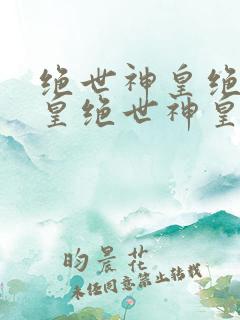 绝世神皇绝
皇绝世神皇
昀晨花
未经同意禁止转载